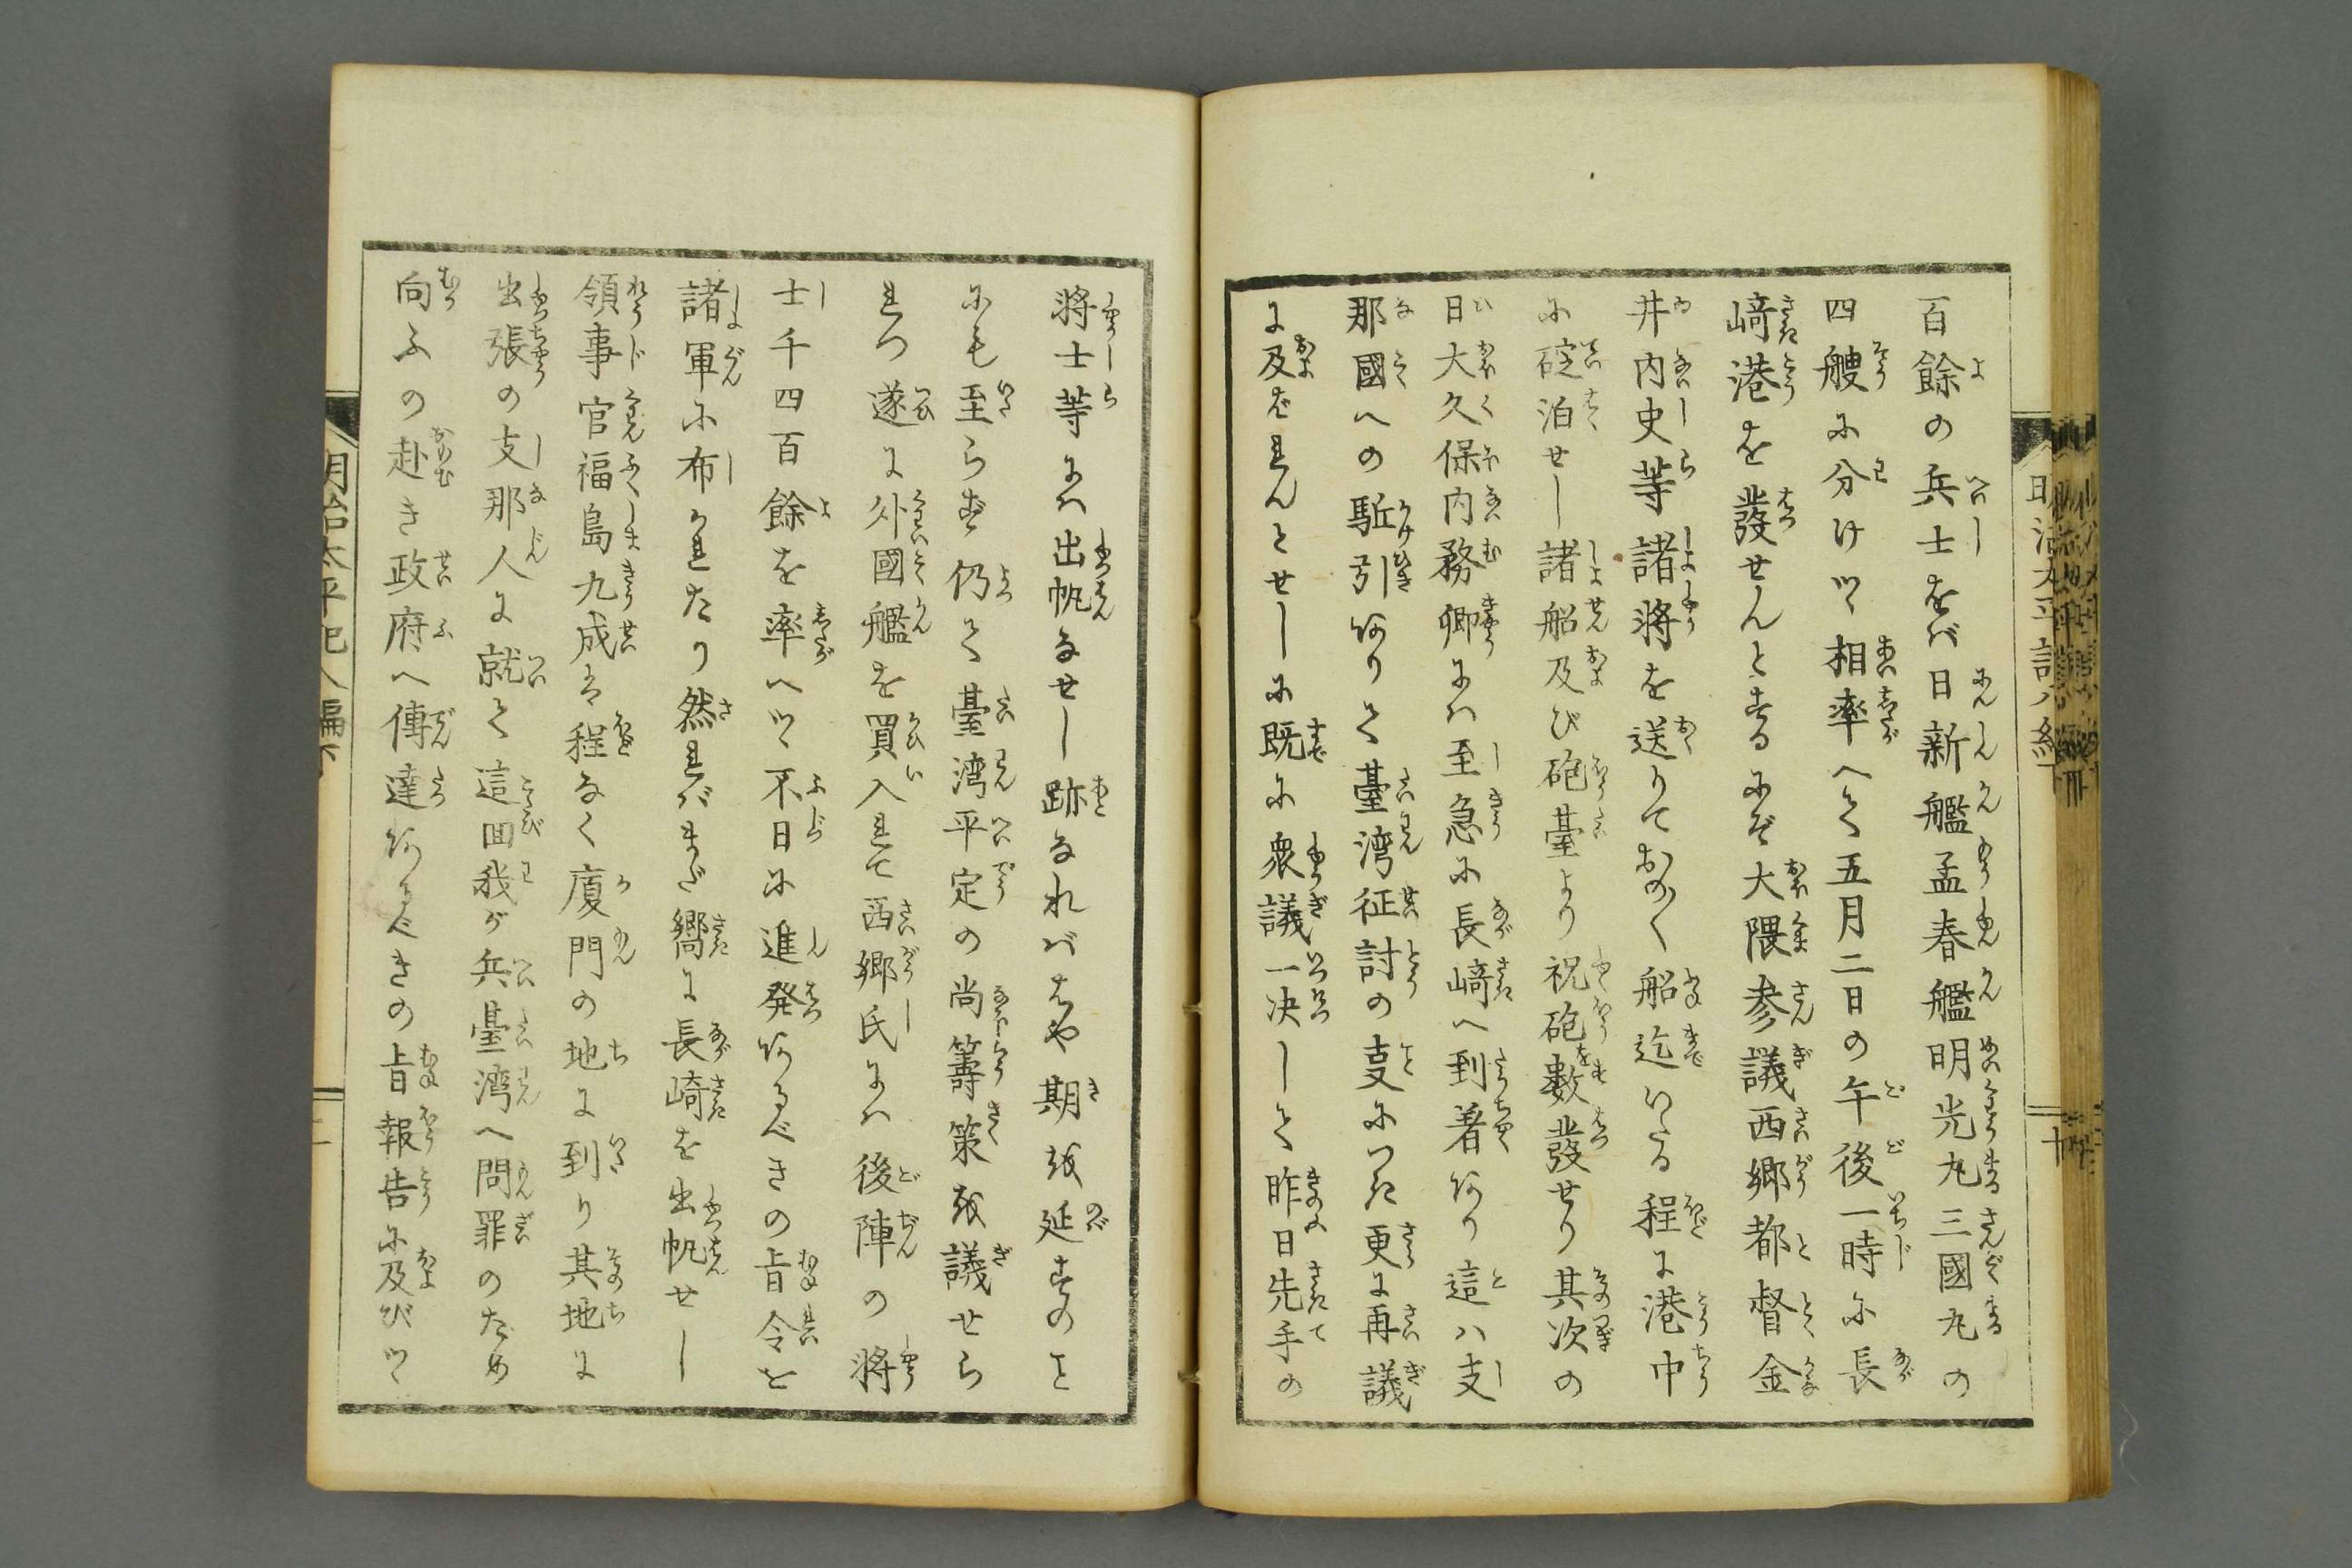 百餘の兵士をバ日新艦孟春艦明光丸三國丸の
四艘に分けツヽ相率へて五月二日の午後一時に長
﨑港を發せんとするにぞ大隈参議西郷都督金
井内史等諸将を送りておの〳〵船迄いたる程に港中
に碇泊せし諸船及び砲臺より祝砲數發せり其次の
日大久保内務卿にハ至急に長﨑へ到着あり這ハ支
那國への駈引ありて臺湾征討の叓につき更に再議
に及ばれんとせしに既に衆議一决して昨日先手の
将士等にハ出帆なせし跡なれバはや期を延すのこと
にも至らず仍て臺湾平定の尚籌策を議せら
れつ遂に外國艦を買入れて西郷氏にハ後陣の将
士千四百餘を率へツヽ不日に進発あるべきの旨令を
諸軍に布かれたり然れバまだ嚮に長崎を出帆せし
領事官福島九成は程なく厦門の地に到り其地に
出張の支那人に就て這回我が兵臺湾へ問罪のため
向ふの赴き政府へ傳達あるべきの旨報告に及びツヽ
明治太平記八編下
十